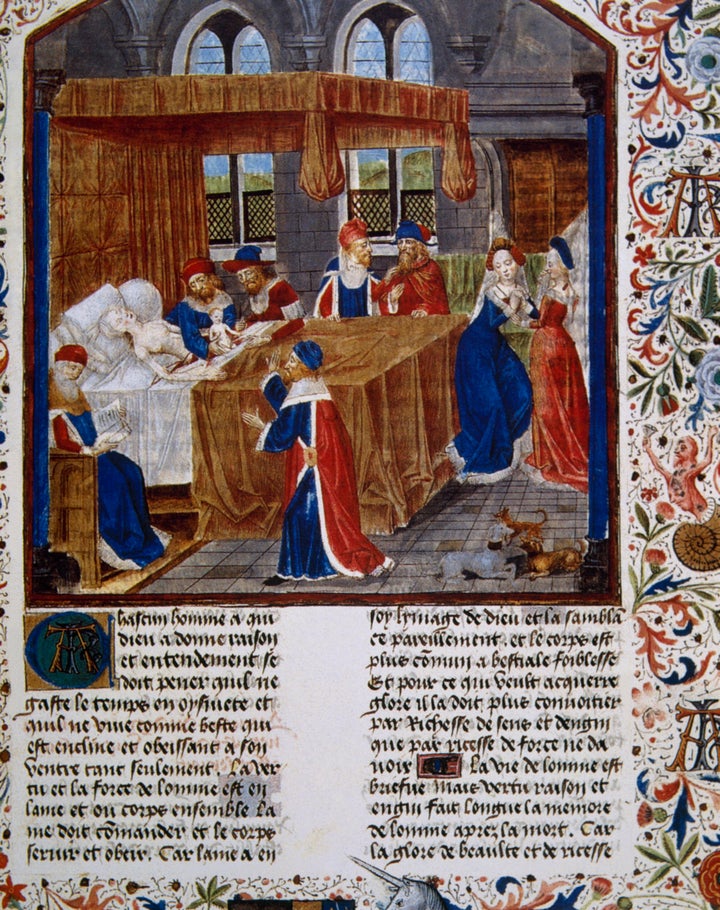 hascun homme a qui
dieu a donne raison
et entendement se
doit pener quil ne
gaste le temps en oysiuete et
quil ne viue comme beste qui
est encline et obeissant a son
ventre tant seulement. La ver
tu et la force de lomme est en
lame et ou corps ensemble La
me doit cōmander et le corps
seruir et obeir. Car lame a en
soy lymage de dieu et la sambla
ce pareillement, et le corps est
plus cōmun a bestiale foiblesse
Et pour ce qui veult acquerre
glore il la doit plus conuoitier
par Richesse de sens et dengin
que par ricesse de force ne da
uoir La vie de lomme est
briefue Mais vertu raison et
engin fait longue la memore
de lomme aprez la mort. Car
la glore de beaulte et de ricesse